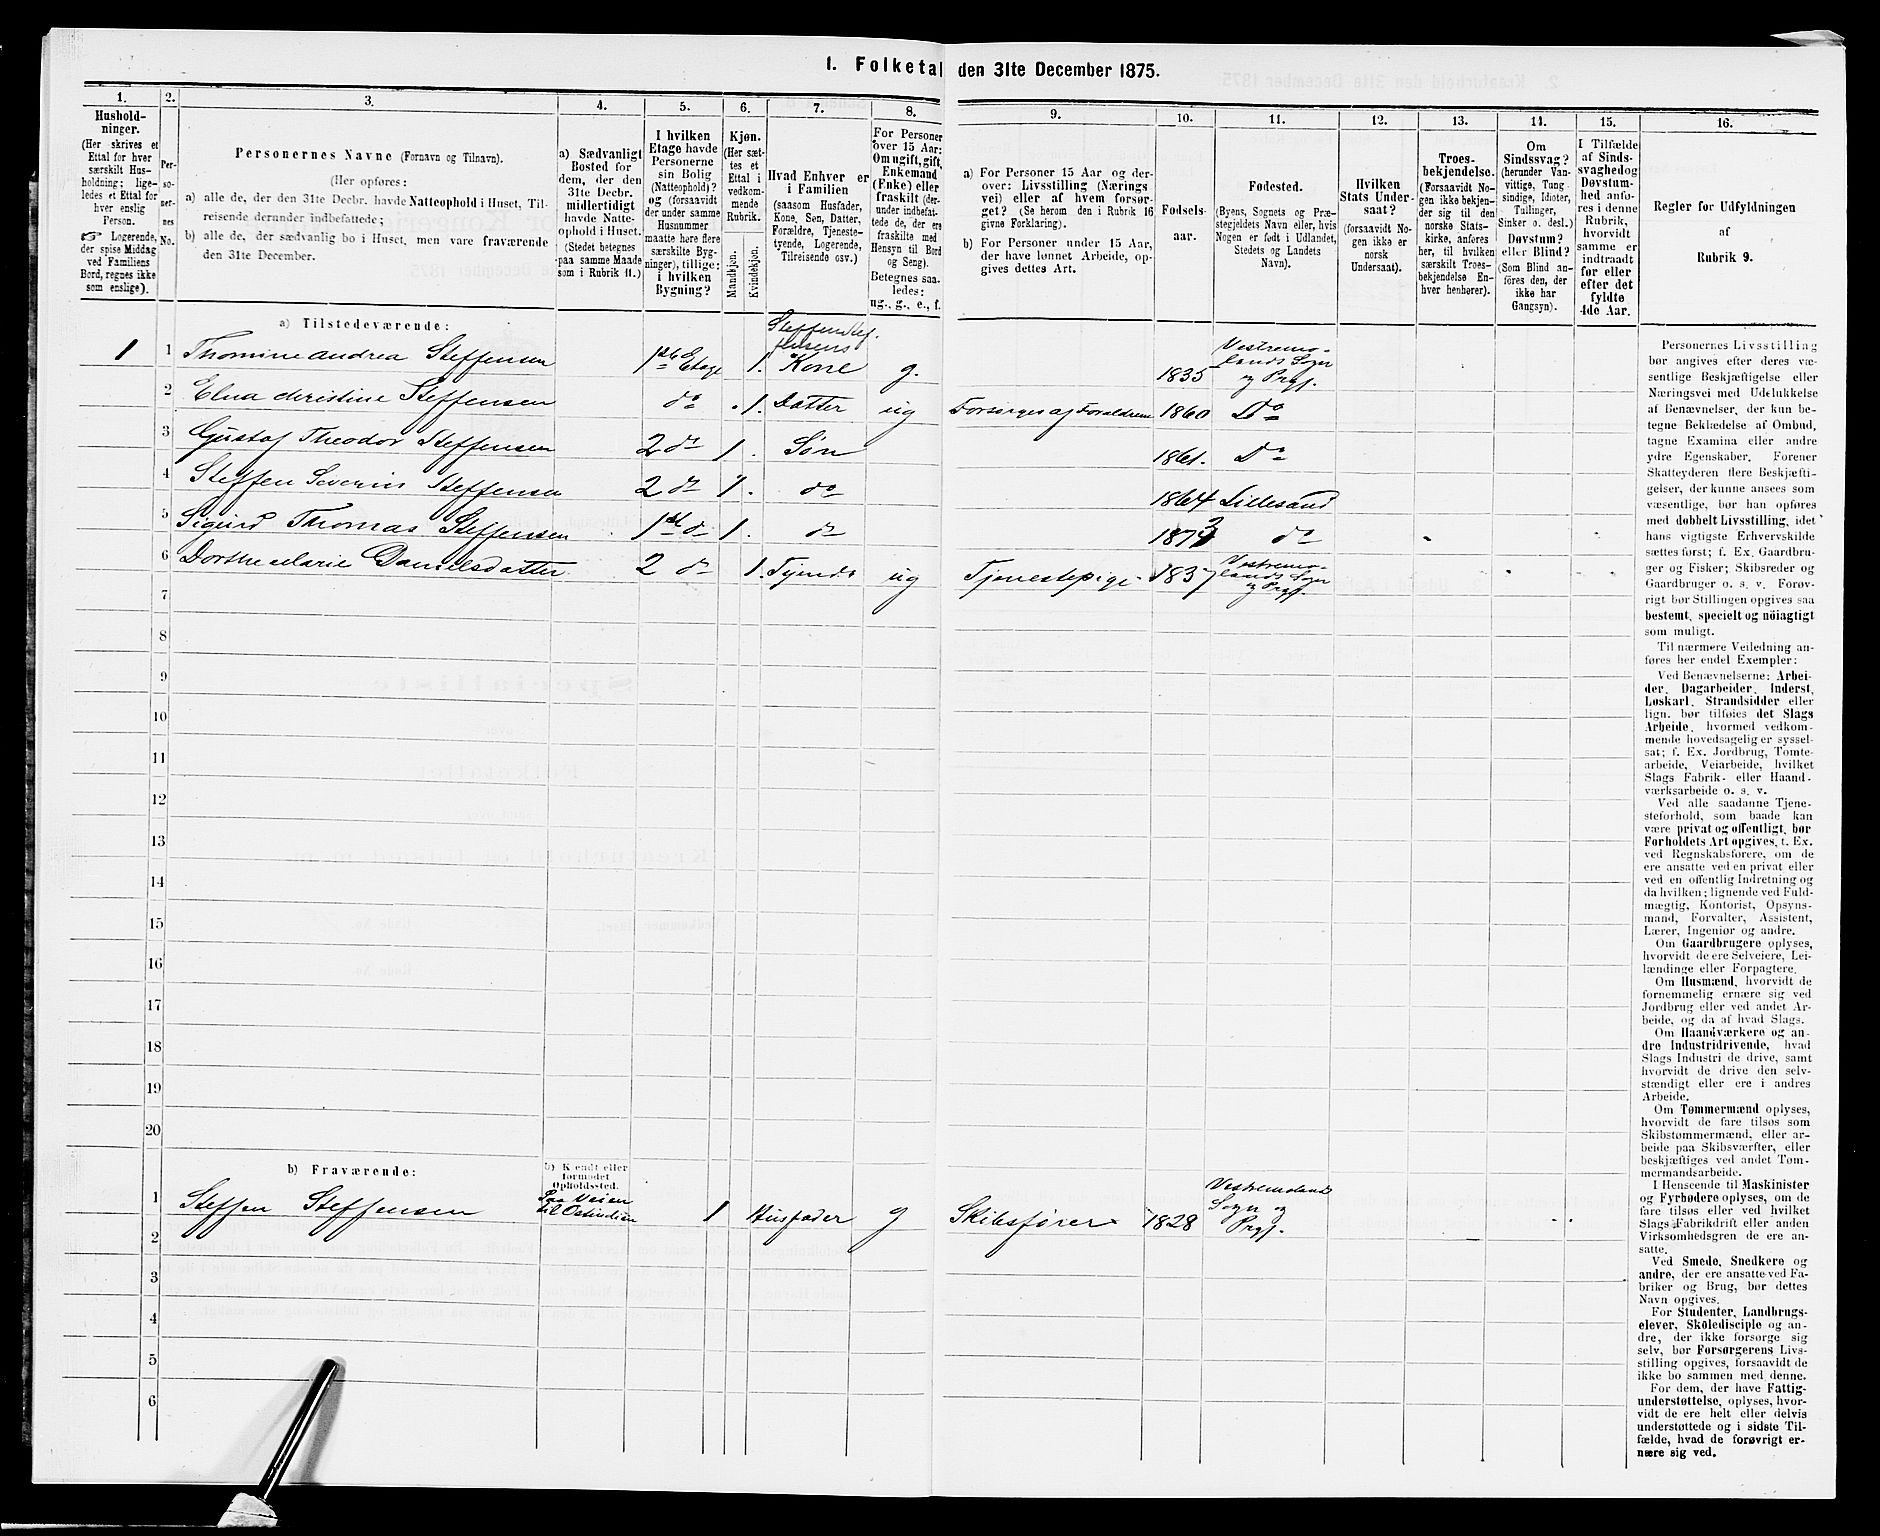 1. Folketal den 31te December 1875.
1.
Hushold-
ninger.
(Her skrives et
Ettal for hver
særskilt Hus-
holdning; lige-
ledes et Ettal for
hver enslig
Person.
Logerende,
der spise Middag
ved Familiens
Bord, regnes ikke
som enslige).
2.
Per-
so-
ner-
nes
No.
3.
Personernes Navne (Fornavn og Tilnavn).
(Her opføres:
a) alle de, der den 31te Decbr. havde Natteophold i Huset, Til-
reisende derunder indbefattede;
b) alle de, der sædvanlig bo i Huset, men vare fraværende
den 31te December.
4.
a) Sædvanligt
Bosted for
dem, der den
31te Decbr.
midlertidigt
havde Natte-
ophold i Huset.
(Stedet betegnes
paa samme Maade
som i Rubrik 11.)
5.
I hvilken
Etage havde
Personerne
sin Bolig
(Natteophold)?
og (forsaavidt
der under samme
Husnummer
maatte høre flere
særskilte Byg-
ninger), tillige:
i hvilken
Bygning?
6.
Kjøn.
(Her sæt-
tes et
Ettal i
vedkom-
mende
Rubrik.
Mandkjøn.
Kvindekjøn.
7.
Hvad Enhver er
i Familien
(saasom Husfader,
Kone, Søn, Datter,
Forældre, Tjeneste-
tyende, Logerende,
Tilreisende osv.)
8.
For Personer
over 15 Aar:
Om ugift, gift,
Enkemand
(Enke) eller
fraskilt (der-
under indbefat-
tede de, der ere
fraskilte med
Hensyn til Bord
og Seng).
Betegnes saa-
ledes:
ug., g., e., f.
9.
a) For Personer 15 Aar og der-
over: Livsstilling (Nærings
vei) eller af hvem forsør-
get? (Se herom den i Rubrik 16
givne Forklaring).
b) For Personer under 15 Aar,
der have lønnet Arbeide, op-
gives dettes Art.
10.
Fødsels-
aar.
11.
Fødested.
(Byens, Sognets og Præ-
stegjeldets Navn eller, hvis
Nogen er født i Udlandet,
Stedets og Landets
Navn).
12.
Hvilken
Stats Under-
saat?
(forsaavidt No-
gen ikke er
norsk
Undersaat).
13.
Troes-
bekjendelse.
(Forsaavidt No-
gen ikke bekjen-
der sig til den
norske Stats-
kirke, anføres
her, til hvilken
særskilt Troes-
bekjendelse En-
hver henhører).
14.
Om
Sindssvag?
(herunder Van-
vittige, Tung-
sindige, Idioter,
Tullinger,
Sinker o. desl.)
Døvstum?
eller Blind?
(Som Blind an-
føres den, der
ikke har
Gangsyn).
15.
I Tilfælde
af Sinds-
svaghed og
Døvstum-
hed anfø-
res i denne
Rubrik,
hvorvidt
samme er
indtraadt
før eller
efter det
fyldte
4de Aar.
16.
Regler for Udfyldningen
af
Rubrik 9.
a) Tilstedeværende:
1 1 Thomine Andrea Steffensen 1ste Etage 1. Steffen Stef-
fensens Kone g. 1835 Vestremo-
lands Sogn
og Prgj.
2 Elna Christine Steffensen do 1. Datter ug Forsørges af Forældrene 1860 Do
3 Gustaf Theodor Steffensen 2 do 1 Søn 1861. Do
4 Steffen Severin Steffensen 2 do 1 do 1864 Lillesand
5 Sigurd Thomas Steffensen 1st do 1. do 1873 do
6 Dorthe Marie Danielsdatter 2 do 1. Tjende ug Tjenestepige 1837 Vestremo-
lands Sogn
og Prgj.
7
8
9
10
11
12
13
14
15
16
17
18
19
20
b) Fraværende:
b) Kjendt eller
formodet
Opholdssted.
1 Steffen Steffensen Paa Veien
til Ostindien 1 Husfader g Skibsfører 1828 Vestremoland
Sogn og
Prgj.
2
3
4
5
6
Personernes Livsstilling
bør angives efter deres væ-
sentlige Beskjæftigelse eller
Næringsvei med Udelukkelse
af Benævnelser, der kun be-
tegne Beklædelse af Ombud,
tagne Examina eller andre
ydre Egenskaber. Forener
Skatteyderen flere Beskjæfti-
gelser, der kunne ansees som
væsentlige, bør han opføres
med dobbelt Livsstilling, idet
hans vigtigste Erhvervskilde
sættes først; f. Ex. Gaardbru-
ger og Fisker; Skibsreder og
Gaardbruger o. s. v. Forøv-
rigt bør Stillingen opgives saa
bestemt, specielt og nöiagtigt
som muligt.
Til nærmere Veiledning an-
føres her endel Exempler:
Ved Benævnelserne: Arbei-
der, Dagarbeider, Inderst,
Løskarl, Strandsidder eller
lign. bør tilføies det Slags
Arbeide, hvormed vedkom-
mende hovedsagelig er syssel-
sat; f. Ex. Jordbrug, Tomte-
arbeide, Veiarbeide, hvilket
Slags Fabrik- eller Haand-
værksarbeide o. s. v.
Ved alle saadanne Tjene-
steforhold, som baade kan
være privat og offentligt, bør
Forholdets Art opgives, t. Ex.
ved Regnskabsførere, om de
ere ansatte ved en privat eller
ved en offentlig Indretning og
da hvilken; lignende ved Fuld-
mægtig, Kontorist, Opsyns-
mand, Forvalter, Assistent,
Lærer, Ingeniør og andre.
Om Gaardbrugere oplyses,
hvorvidt de ere Selveiere, Lei-
lændinge eller Forpagtere.
Om Husmænd, hvorvidt de
fornemmelig ernære sig ved
Jordbrug eller ved andet Ar-
beide, og da af hvad Slags.
Om Haandværkere og an-
dre Industridrivende, hvad
Slags Industri de drive, samt
hvorvidt de drive den selv-
stændigt eller ere i andres
Arbeide.
Om Tømmermænd oplyses,
hvorvidt de fare tilsøs som
Skibstømmermænd, eller ar-
beide paa Skibsværfter, eller
beskjæftiges ved andet Tøm-
mermandsarbeide.
I Henseende til Maskinister
og Fyrbødere oplyses, om de
fare tilsøs eller ved hvilket
Slags Fabrikdrift eller anden
Virksomhedsgren de ere an-
satte.
Ved Smede, Snedkere og
andre, der ere ansatte ved Fa-
briker og Brug, bør dettes
Navn opgives.
For Studenter, Landbrugs-
elever, Skoledisciple og an-
dre, der ikke forsørge sig
selv, bør Forsørgerens Livs-
stilling opgives, forsaavidt de
ikke bo sammen med denne.
For dem, der have Fattig-
understøttelse, oplyses, hvor-
vidt de ere helt eller delvis
understøttede og i sidste Til-
fælde, hvad de forøvrigt er-
nære sig ved.